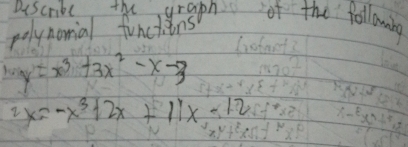 Describe the graph of the following
polynomial functions
y = x³ + 3x² - x - 3
x = -x³ + 2x + 11x - 12